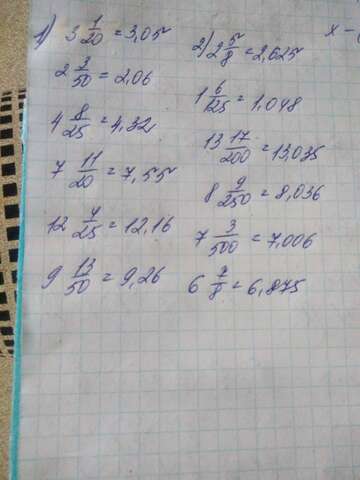 1) 3 1/20 = 3,05
2 3/50 = 2,06
4 8/25 = 4,32
7 11/20 = 7,55
12 4/25 = 12,16
9 13/50 = 9,26
2) 2 5/8 = 2,625
1 6/125 = 1,048
13 17/200 = 13,035
8 9/250 = 8,036
7 3/500 = 7,006
6 7/8 = 6,875
x -